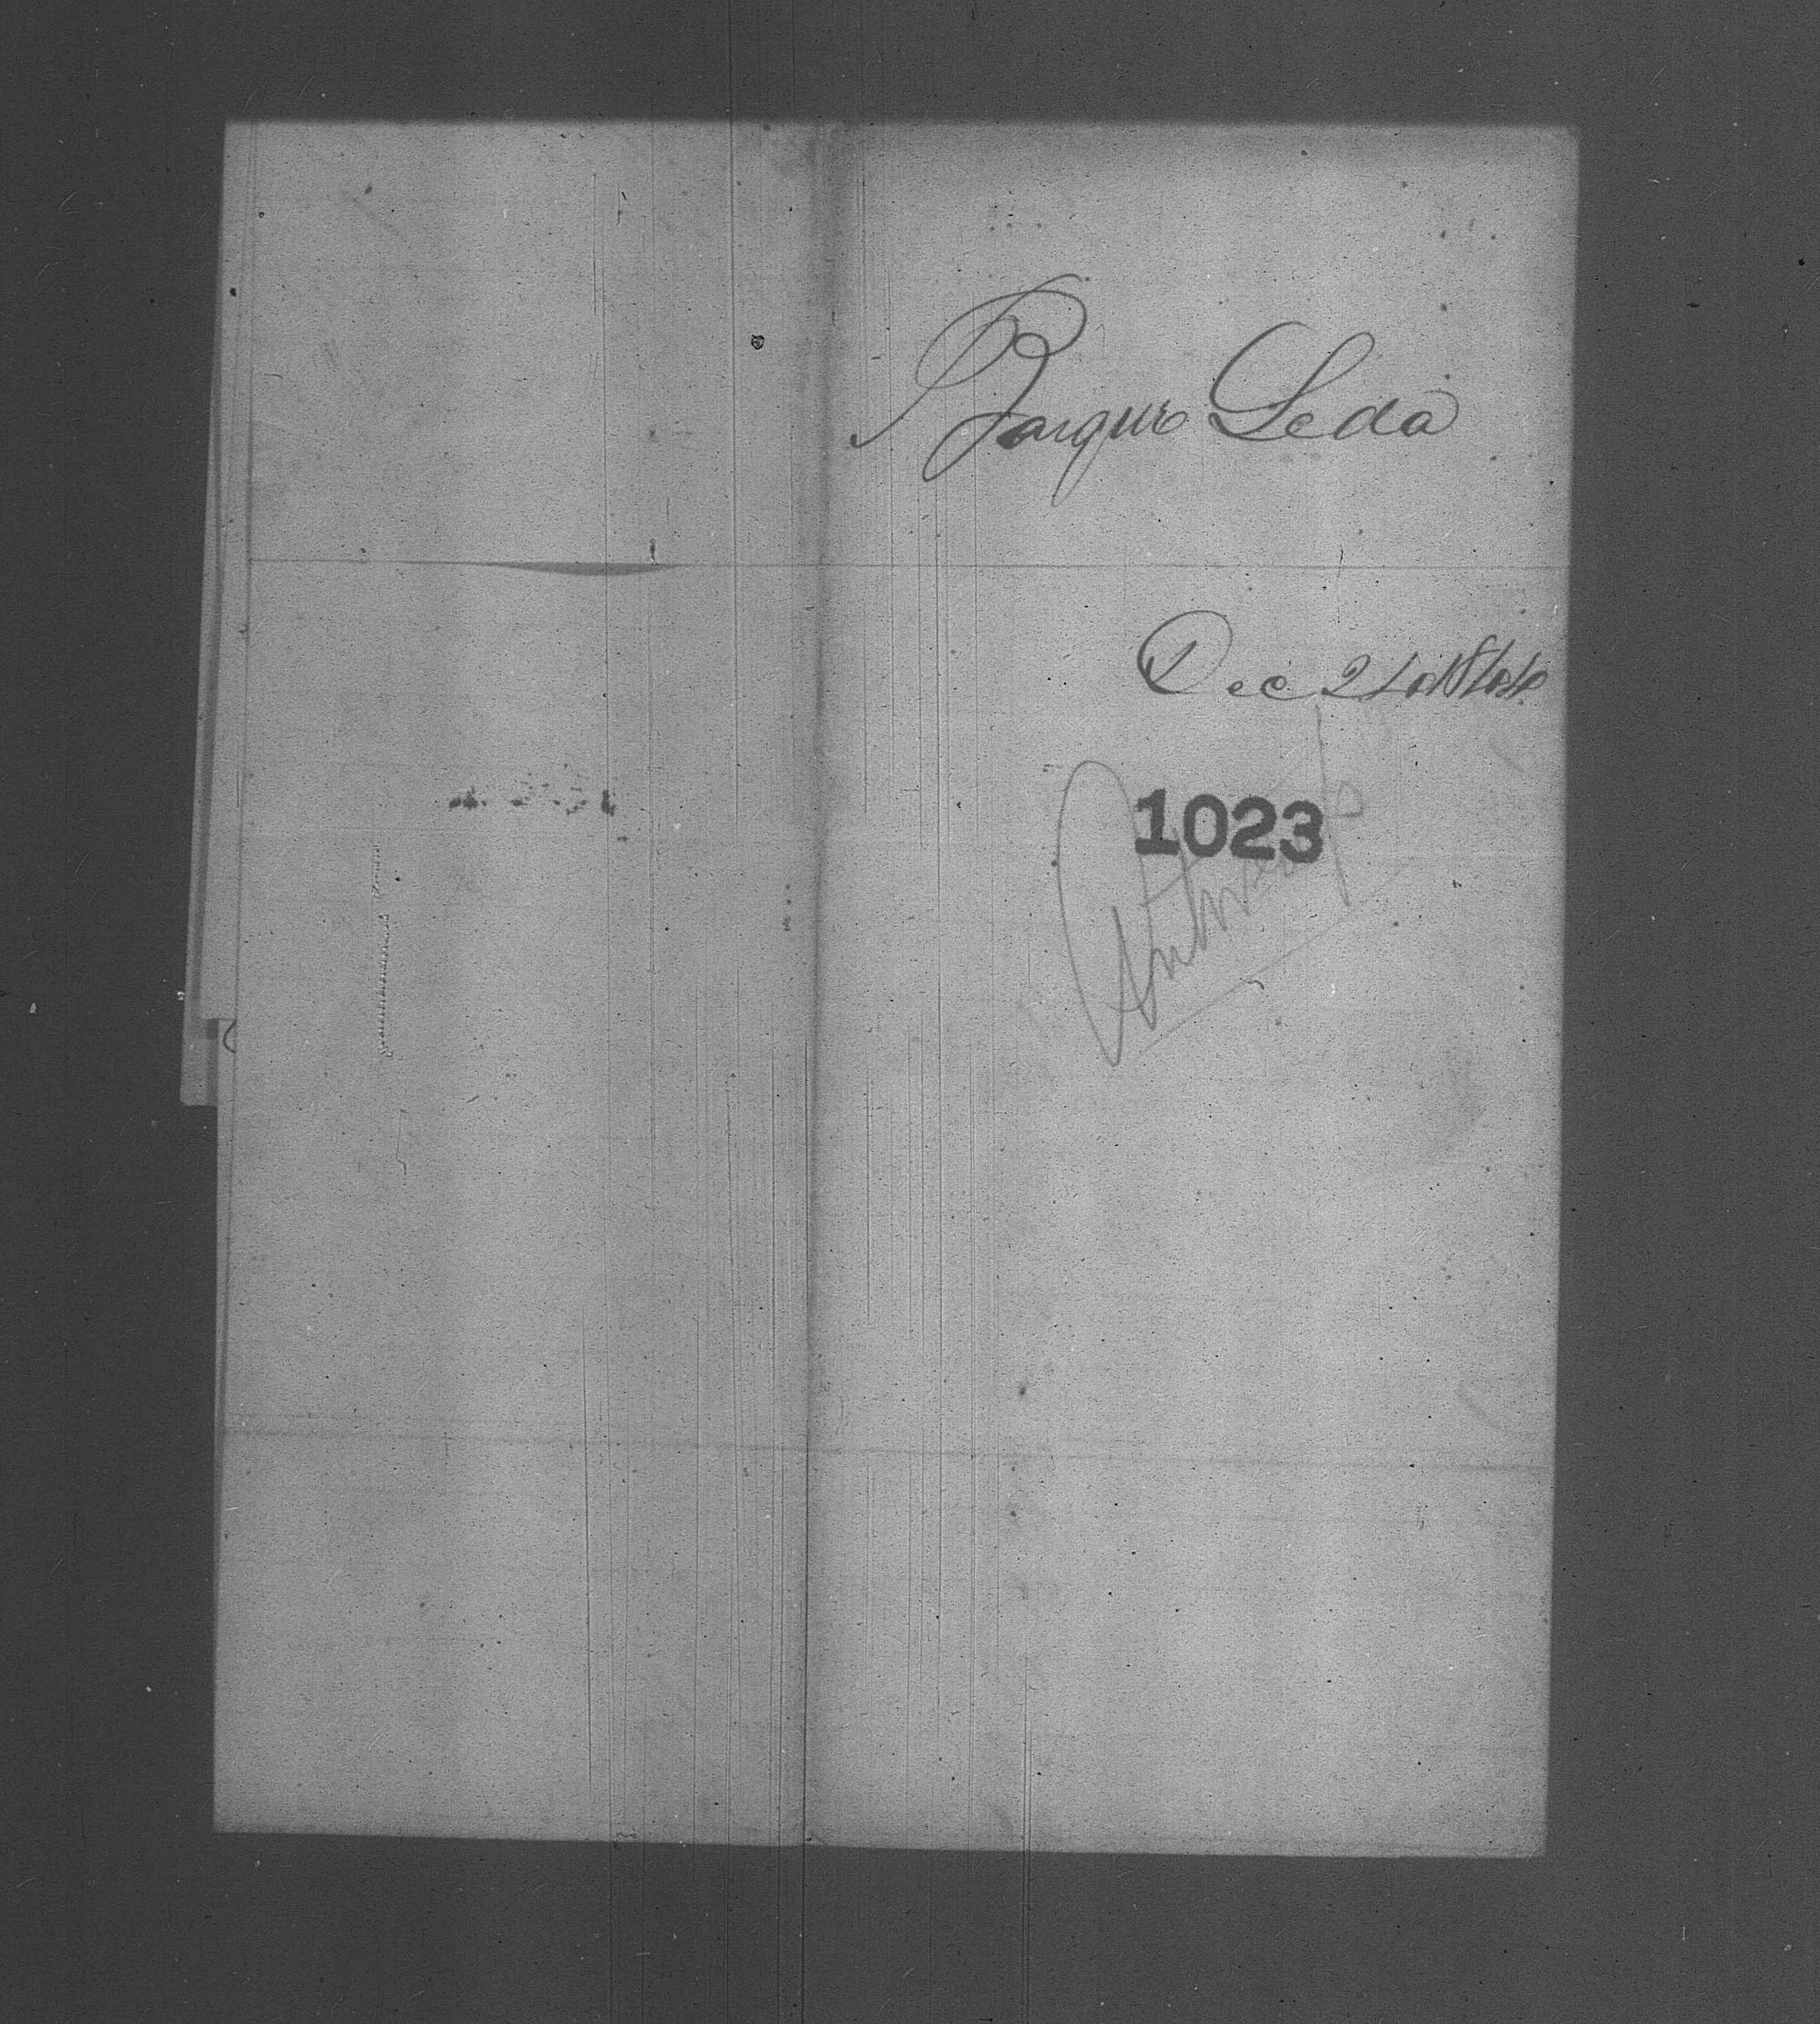 Barque Leda
Dec 24 1844
1023
Antwerp